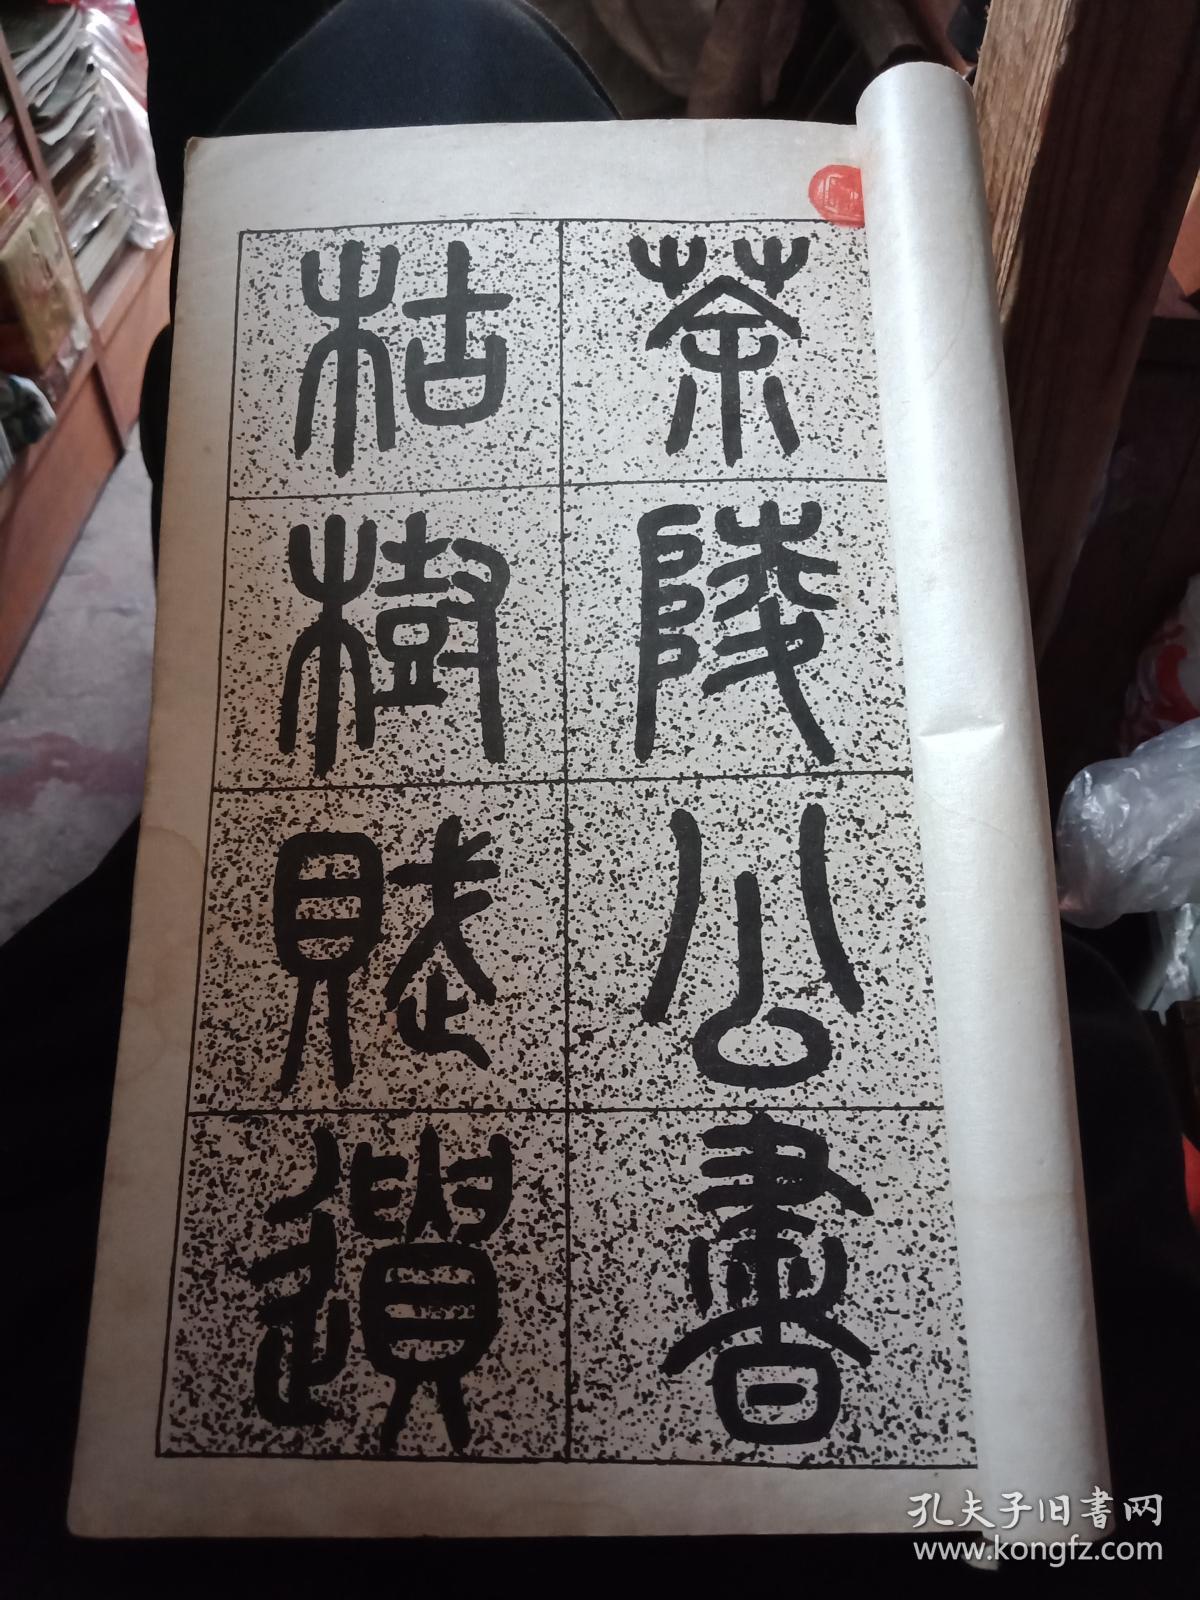 茶陵公書
枯樹賦遺
孔夫子旧書网
www.kongfz.com